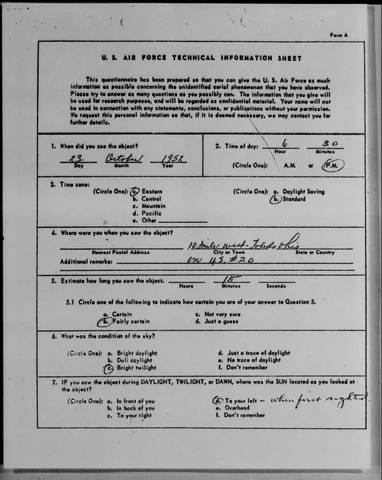 Form A
U. S. AIR FORCE TECHNICAL INFORMATION SHEET
This questionnaire has been prepared so that you can give the U. S. Air Force as much
information as possible concerning the unidentified aerial phenomenon that you have observed.
Please try to answer as many questions as you possibly can. The information that you give will
be used for research purposes, and will be regarded as confidential material. Your name will not
be used in connection with any statements, conclusions, or publications without your permission.
We request this personal information so that, if it is deemed necessary, we may contact you for
further details.
1. When did you see the object?
23 October 1952
Day Month Year
2. Time of day: 6 30
Hour Minutes
(Circle One): A.M. or P.M.
3. Time zone:
(Circle One): a. Eastern
b. Central
c. Mountain
d. Pacific
e. Other
(Circle One): a. Daylight Saving
b. Standard
4. Where were you when you saw the object?
10 mile west Toledo Ohio
Nearest Postal Address City or Town State or Country
Additional remarks: on U.S. #20
5. Estimate how long you saw the object. 15
Hours Minutes Seconds
5.1 Circle one of the following to indicate how certain you are of your answer to Question 5.
a. Certain
b. Fairly certain
c. Not very sure
d. Just a guess
6. What was the condition of the sky?
(Circle One): a. Bright daylight
b. Dull daylight
c. Bright twilight
d. Just a trace of daylight
e. No trace of daylight
f. Don't remember
7. IF you saw the object during DAYLIGHT, TWILIGHT, or DAWN, where was the SUN located as you looked at
the object?
(Circle One): a. In front of you
b. In back of you
c. To your right
d. To your left - when first sighted
e. Overhead
f. Don't remember